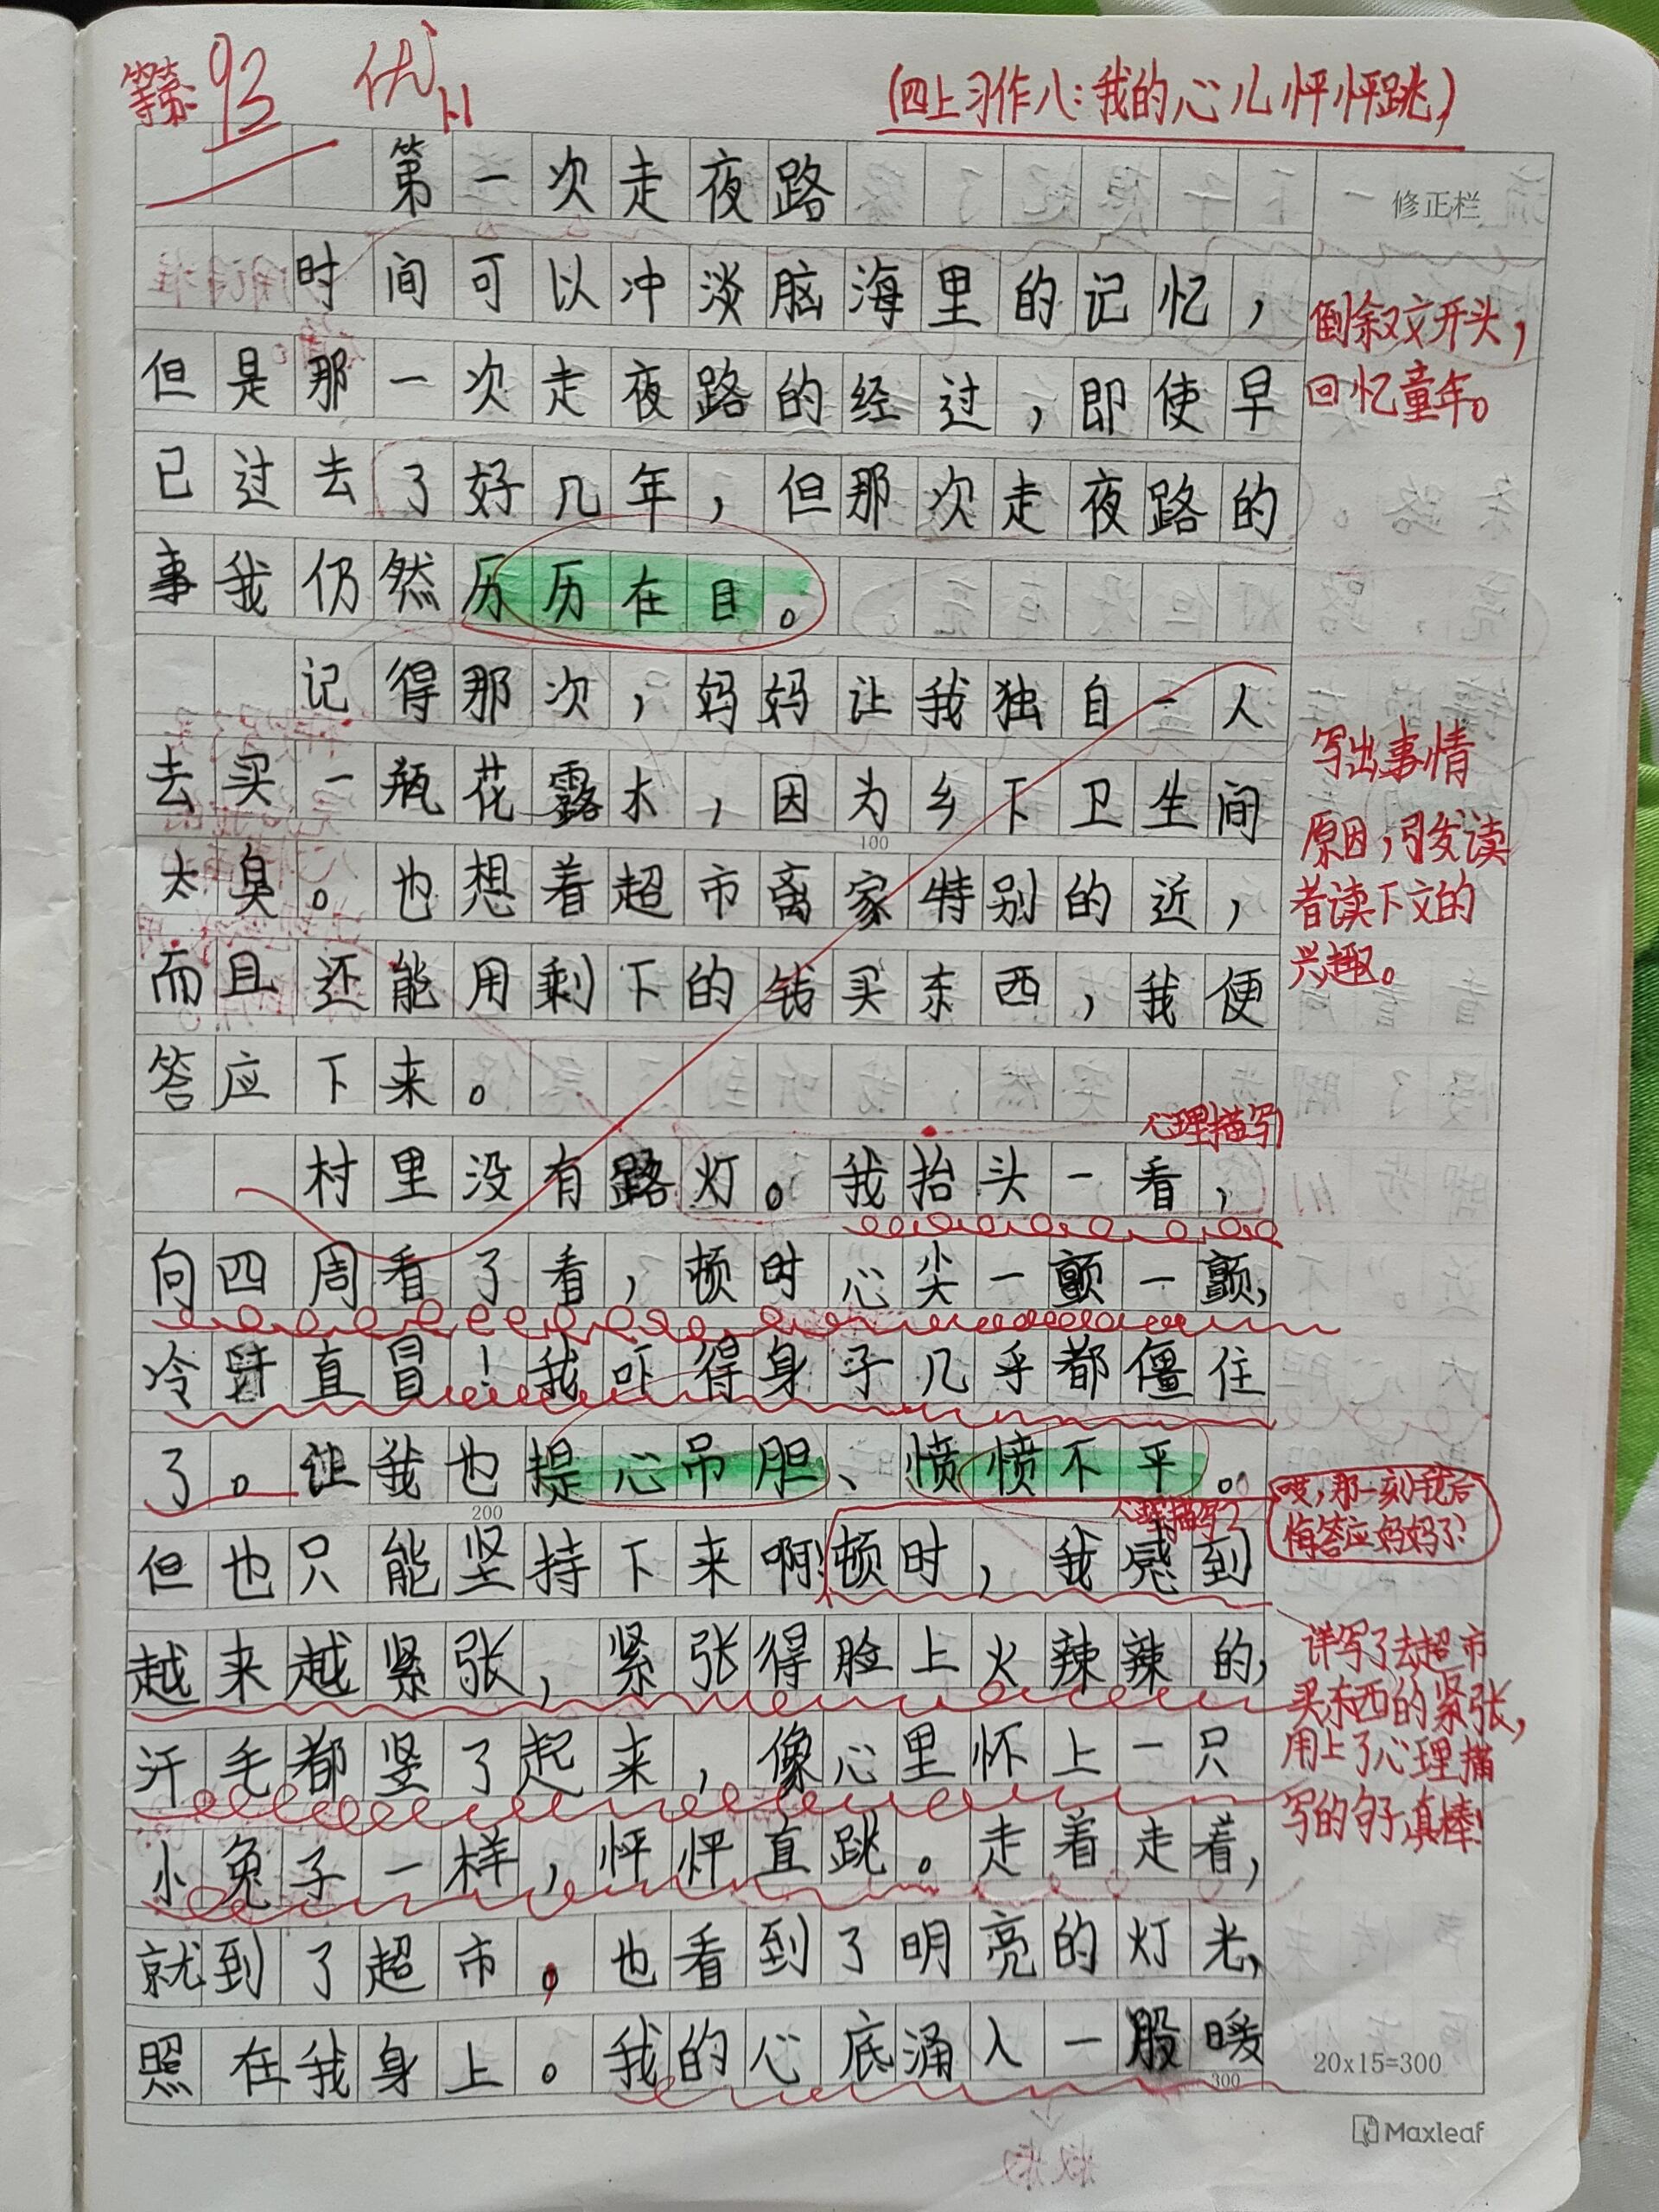 等第:93 优
(四上习作八:我的心儿怦怦跳)
第一次走夜路
修正栏
时间可以冲淡脑海里的记忆,
但是那一次走夜路的经过,即使早
已过去了好几年,但那次走夜路的
事我仍然历历在目。
倒叙文开头,
回忆童年。
记得那次,妈妈让我独自一人
去买一瓶花露水,因为乡下卫生间
100
太臭。也想着超市离家特别的近,
而且还能用剩下的钱买东西,我便
答应下来。
写出事情
原因,引发读
者读下文的
兴趣。
心理描写
村里没有路灯。我抬头一看,
向四周看了看,顿时心尖一颤一颤,
冷汗直冒!我吓得身子几乎都僵住
了。让我也提心吊胆、愤愤不平。
200
哎,那一刻我后
悔答应妈妈了!
心理描写2
但也只能坚持下来啊!顿时,我感到
越来越紧张,紧张得脸上火辣辣的,
汗毛都竖了起来,像心里怀上一只
小兔子一样,怦怦直跳。走着走着,
就到了超市。也看到了明亮的灯光,
照在我身上。我的心底涌入一股暖
300
详写了去超市
买东西的紧张,
用上了心理描
写的句子,真棒!
20x15=300
Maxleaf